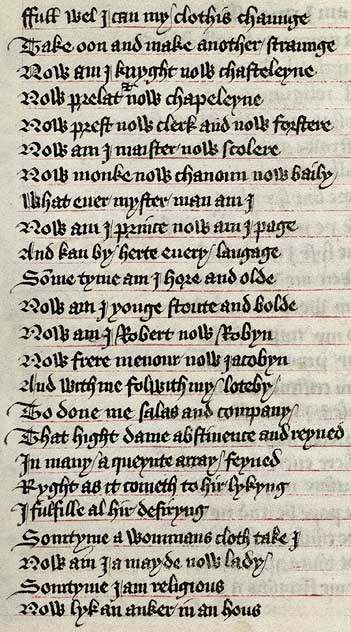 Full wel I can my clothis chaunge
Take oon and make another straunge
Now am I knyght now chasteleyne
Now prelat & now chapeleyne
Now prest now clerk and now forstere
Now am I maister now scolere
Now monke now chanoun now baily
What euer myster man am I
Now am I prince now am I page
And kan by herte euery langage
Some tyme am I hore and olde
Now am I yonge stoute and bolde
Now am I Robert now Robyn
Now frere menour now Jacobyn
And with me folwith my loteby
To done me solas and company
That hight dame abstinence and reyned
In many a queynte array feyned
Ryght as it cometh to hir lykyng
I fulfille al hir desiryng
Somtyme a wommans cloth take I
Now am I a mayde now lady
Somtyme I am religious
Now lyk an anker in an hous